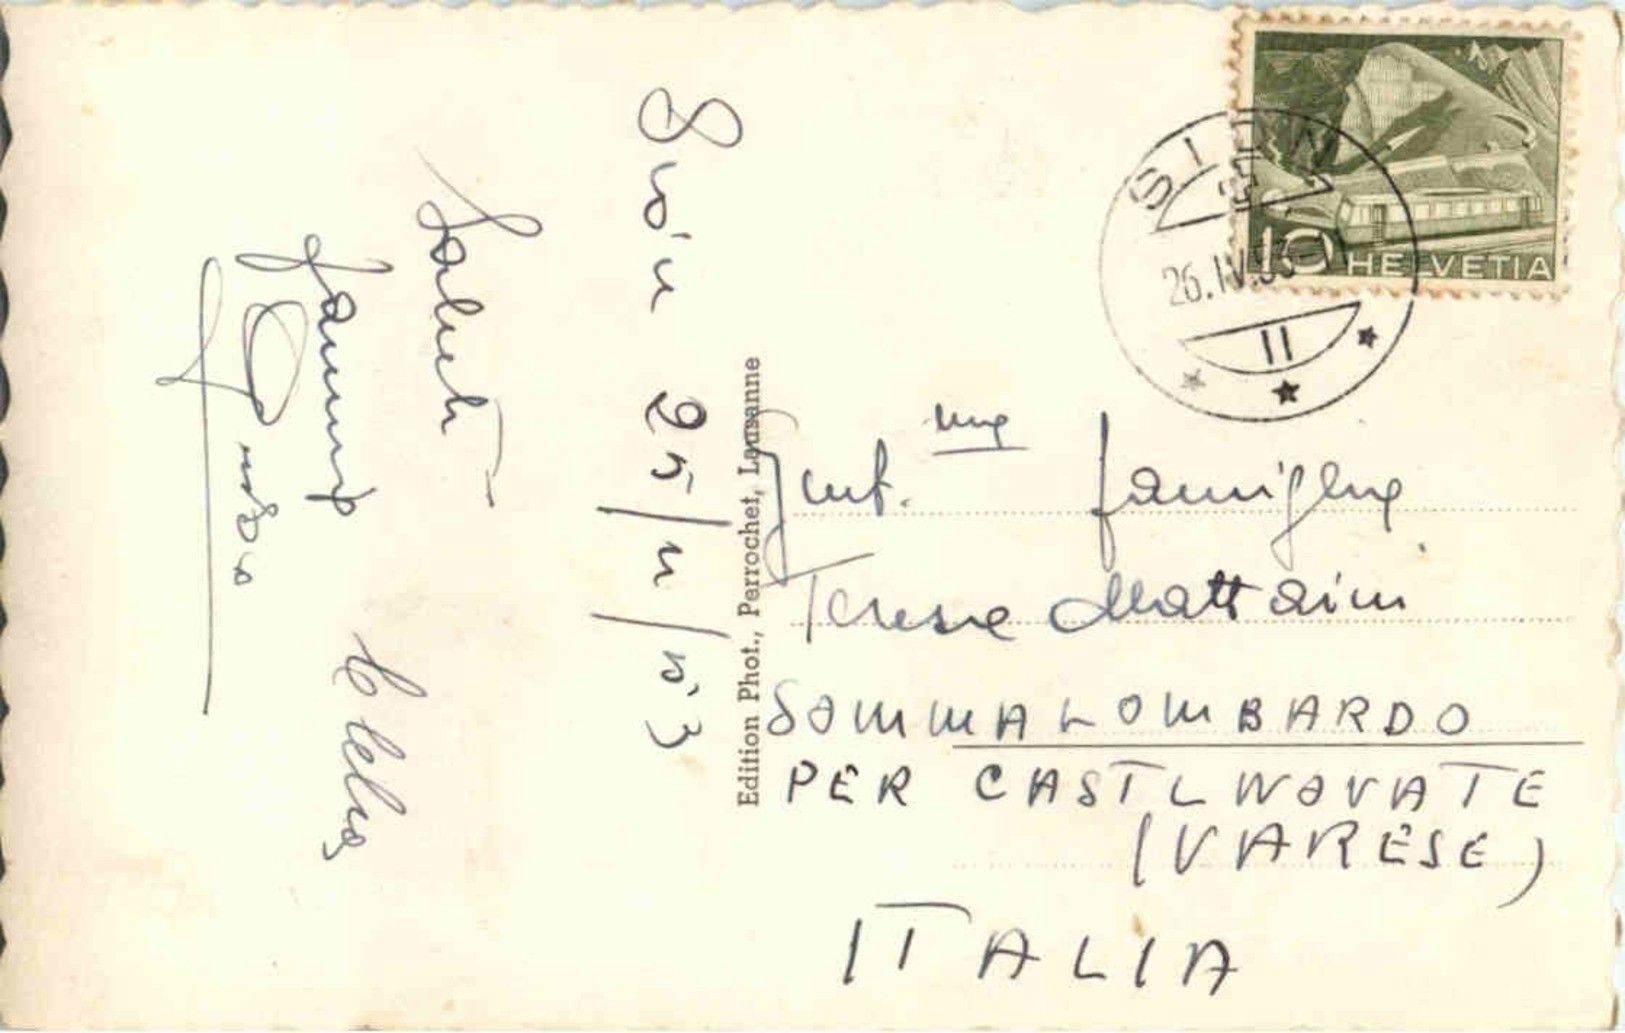 Sión 25/4/53
Saluti
Edition Phot., Perrochet, Lausanne
SION
26.IV.53
II
10 HELVETIA
Gent.ma famiglia
Teresa Mattaini
SOMMALOMBARDO
PER CASTLNOVATE
(VARESE)
ITALIA